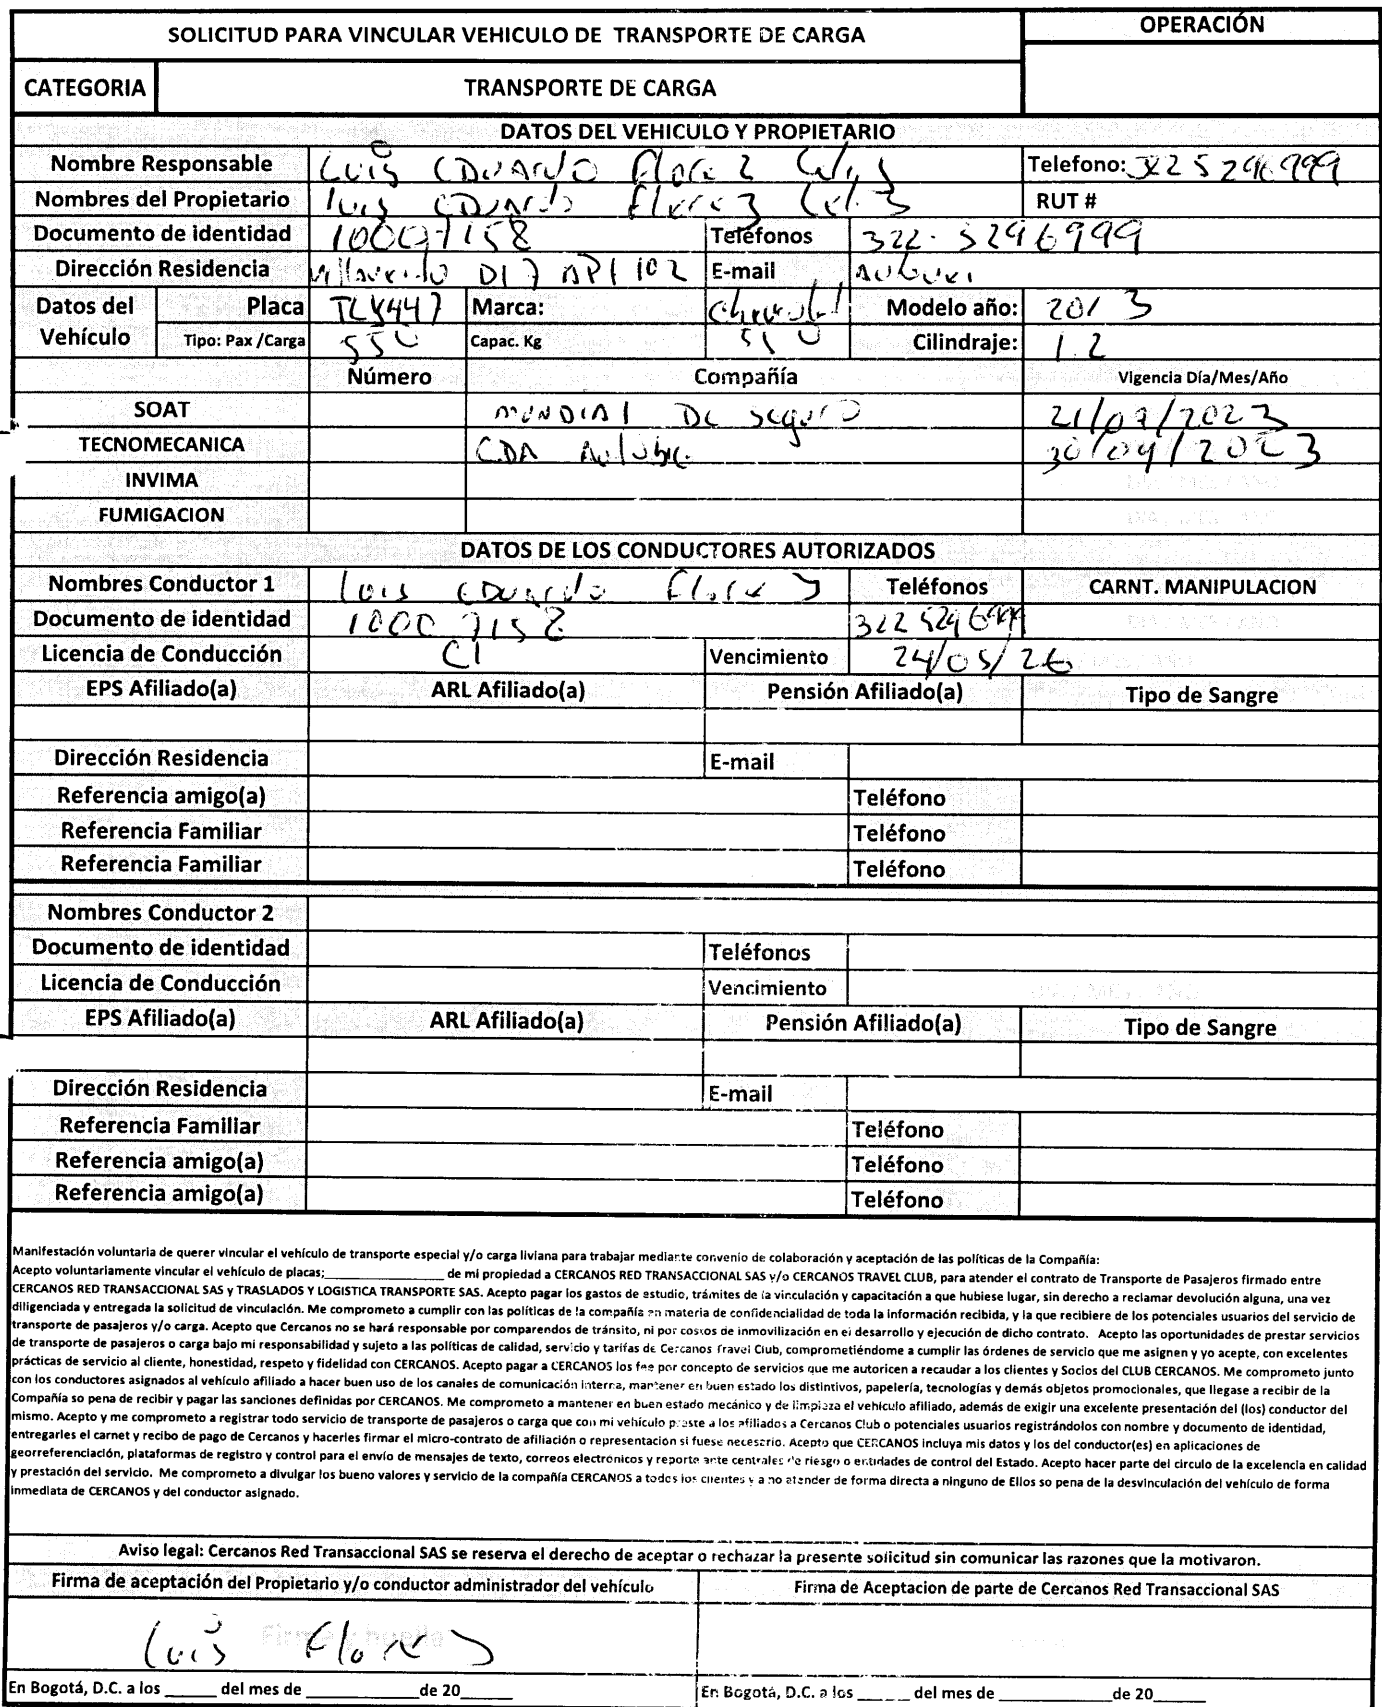 SOLICITUD PARA VINCULAR VEHICULO DE TRANSPORTE DE CARGA
OPERACIÓN
CATEGORIA TRANSPORTE DE CARGA
DATOS DEL VEHICULO Y PROPIETARIO
Nombre Responsable Luis EDUARDO Florez Telefono: 322 5296999
Nombres del Propietario luis EDUARDO Florez RUT #
Documento de identidad 10007158 Teléfonos 322. 5296999
Dirección Residencia DI 7 AP1 102 E-mail
Datos del Vehículo Placa TLY447 Marca: Chevrolet Modelo año: 2013
Tipo: Pax /Carga 550 Capac. Kg 550 Cilindraje: 1.2
Número Compañía Vigencia Día/Mes/Año
SOAT MUNDIAL DE Seguro 21/09/2023
TECNOMECANICA CDA 30/04/2023
INVIMA
FUMIGACION
DATOS DE LOS CONDUCTORES AUTORIZADOS
Nombres Conductor 1 Luis EDUARDO Florez Teléfonos CARNT. MANIPULACION
Documento de identidad 10007158 322 5296999
Licencia de Conducción C1 Vencimiento 24/05/26
EPS Afiliado(a) ARL Afiliado(a) Pensión Afiliado(a) Tipo de Sangre
Dirección Residencia E-mail
Referencia amigo(a) Teléfono
Referencia Familiar Teléfono
Referencia Familiar Teléfono
Nombres Conductor 2
Documento de identidad Teléfonos
Licencia de Conducción Vencimiento
EPS Afiliado(a) ARL Afiliado(a) Pensión Afiliado(a) Tipo de Sangre
Dirección Residencia E-mail
Referencia Familiar Teléfono
Referencia amigo(a) Teléfono
Referencia amigo(a) Teléfono
Manifestación voluntaria de querer vincular el vehículo de transporte especial y/o carga liviana para trabajar mediante convenio de colaboración y aceptación de las políticas de la Compañía:
Acepto voluntariamente vincular el vehículo de placas;____________________ de mi propiedad a CERCANOS RED TRANSACCIONAL SAS y/o CERCANOS TRAVEL CLUB, para atender el contrato de Transporte de Pasajeros firmado entre
CERCANOS RED TRANSACCIONAL SAS y TRASLADOS Y LOGISTICA TRANSPORTE SAS. Acepto pagar los gastos de estudio, trámites de la vinculación y capacitación a que hubiese lugar, sin derecho a reclamar devolución alguna, una vez
diligenciada y entregada la solicitud de vinculación. Me comprometo a cumplir con las políticas de la compañía en materia de confidencialidad de toda la información recibida, y la que recibiere de los potenciales usuarios del servicio de
transporte de pasajeros y/o carga. Acepto que Cercanos no se hará responsable por comparendos de tránsito, ni por costos de inmovilización en el desarrollo y ejecución de dicho contrato. Acepto las oportunidades de prestar servicios
de transporte de pasajeros o carga bajo mi responsabilidad y sujeto a las políticas de calidad, servicio y tarifas de Cercanos Travel Club, comprometiéndome a cumplir las órdenes de servicio que me asignen y yo acepte, con excelentes
prácticas de servicio al cliente, honestidad, respeto y fidelidad con CERCANOS. Acepto pagar a CERCANOS los fee por concepto de servicios que me autoricen a recaudar a los clientes y Socios del CLUB CERCANOS. Me comprometo junto
con los conductores asignados al vehículo afiliado a hacer buen uso de los canales de comunicación interna, mantener en buen estado los distintivos, papelería, tecnologías y demás objetos promocionales, que llegase a recibir de la
Compañía so pena de recibir y pagar las sanciones definidas por CERCANOS. Me comprometo a mantener en buen estado mecánico y de limpieza el vehículo afiliado, además de exigir una excelente presentación del (los) conductor del
mismo. Acepto y me comprometo a registrar todo servicio de transporte de pasajeros o carga que con mi vehículo preste a los afiliados a Cercanos Club o potenciales usuarios registrándolos con nombre y documento de identidad,
entregarles el carnet y recibo de pago de Cercanos y hacerles firmar el micro-contrato de afiliación o representación si fuese necesario. Acepto que CERCANOS incluya mis datos y los del conductor(es) en aplicaciones de
georreferenciación, plataformas de registro y control para el envío de mensajes de texto, correos electrónicos y reporte ante centrales de riesgo o entidades de control del Estado. Acepto hacer parte del circulo de la excelencia en calidad
y prestación del servicio. Me comprometo a divulgar los bueno valores y servicio de la compañía CERCANOS a todos los clientes y a no atender de forma directa a ninguno de Ellos so pena de la desvinculación del vehículo de forma
inmediata de CERCANOS y del conductor asignado.
Aviso legal: Cercanos Red Transaccional SAS se reserva el derecho de aceptar o rechazar la presente solicitud sin comunicar las razones que la motivaron.
Firma de aceptación del Propietario y/o conductor administrador del vehículo Firma de Aceptacion de parte de Cercanos Red Transaccional SAS
Firma y huella
Luis Florez
En Bogotá, D.C. a los ______ del mes de ______________de 20______ En Bogotá, D.C. a los ______ del mes de ______________de 20______